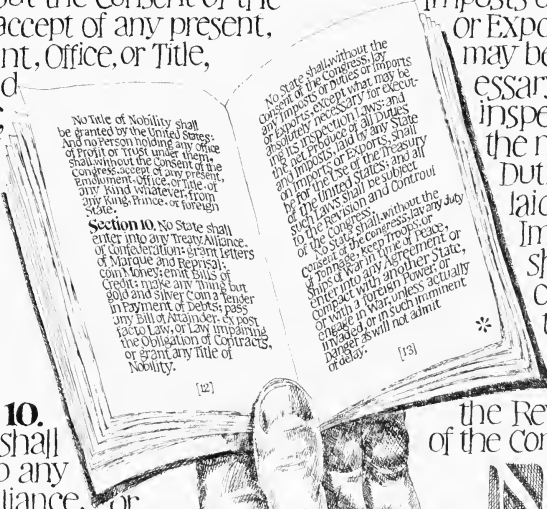 out the Consent of the
accept of any present,
nt, Office, or Title,
d
No Title of Nobility shall
be granted by the United States:
And no Person holding any office
of Profit or Trust under them,
shall, without the Consent of the
Congress, accept of any present,
Emolument, Office, or Title, of
any kind whatever, from
any King, Prince, or foreign
State.
Section 10. No State shall
enter into any Treaty, Alliance,
or Confederation; grant Letters
of Marque and Reprisal;
coin Money; emit Bills of
Credit; make any Thing but
gold and silver Coin a Tender
in Payment of Debts; pass
any Bill of Attainder, ex post
facto Law, or Law impairing
the Obligation of Contracts,
or grant any Title of
Nobility.
[12]
No State shall, without the
Consent of the Congress, lay
any Imposts or Duties on Imports
or Exports, except what may be
absolutely necessary for execut-
ing it's inspection Laws: and
the net Produce of all Duties
and Imposts, laid by any State
on Imports or Exports, shall
be for the Use of the Treasury
of the United States; and all
such Laws shall be subject
to the Revision and Controul
of the Congress.
No State shall, without the
Consent of Congress, lay any duty
of Tonnage, keep Troops, or
Ships of War in time of Peace,
enter into any Agreement or
Compact with another State,
or with a foreign Power, or
engage in War, unless actually
invaded, or in such imminent
Danger as will not admit
of delay.
[13]
*
Imposts o
or Expo
may be
essar
inspe
the n
Dut
laid
Im
sh
t
10.
shall
o any
liance, or
the Re
of the Con
N